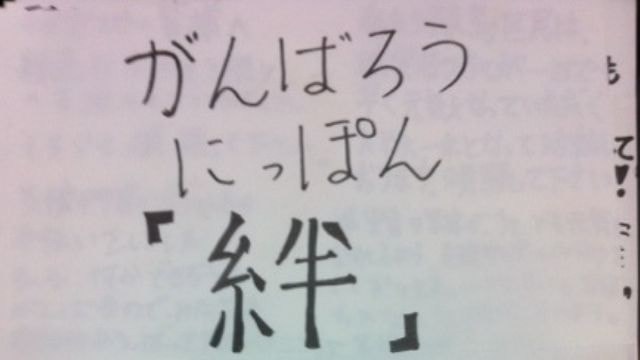 がんばろう
にっぽん
『絆』